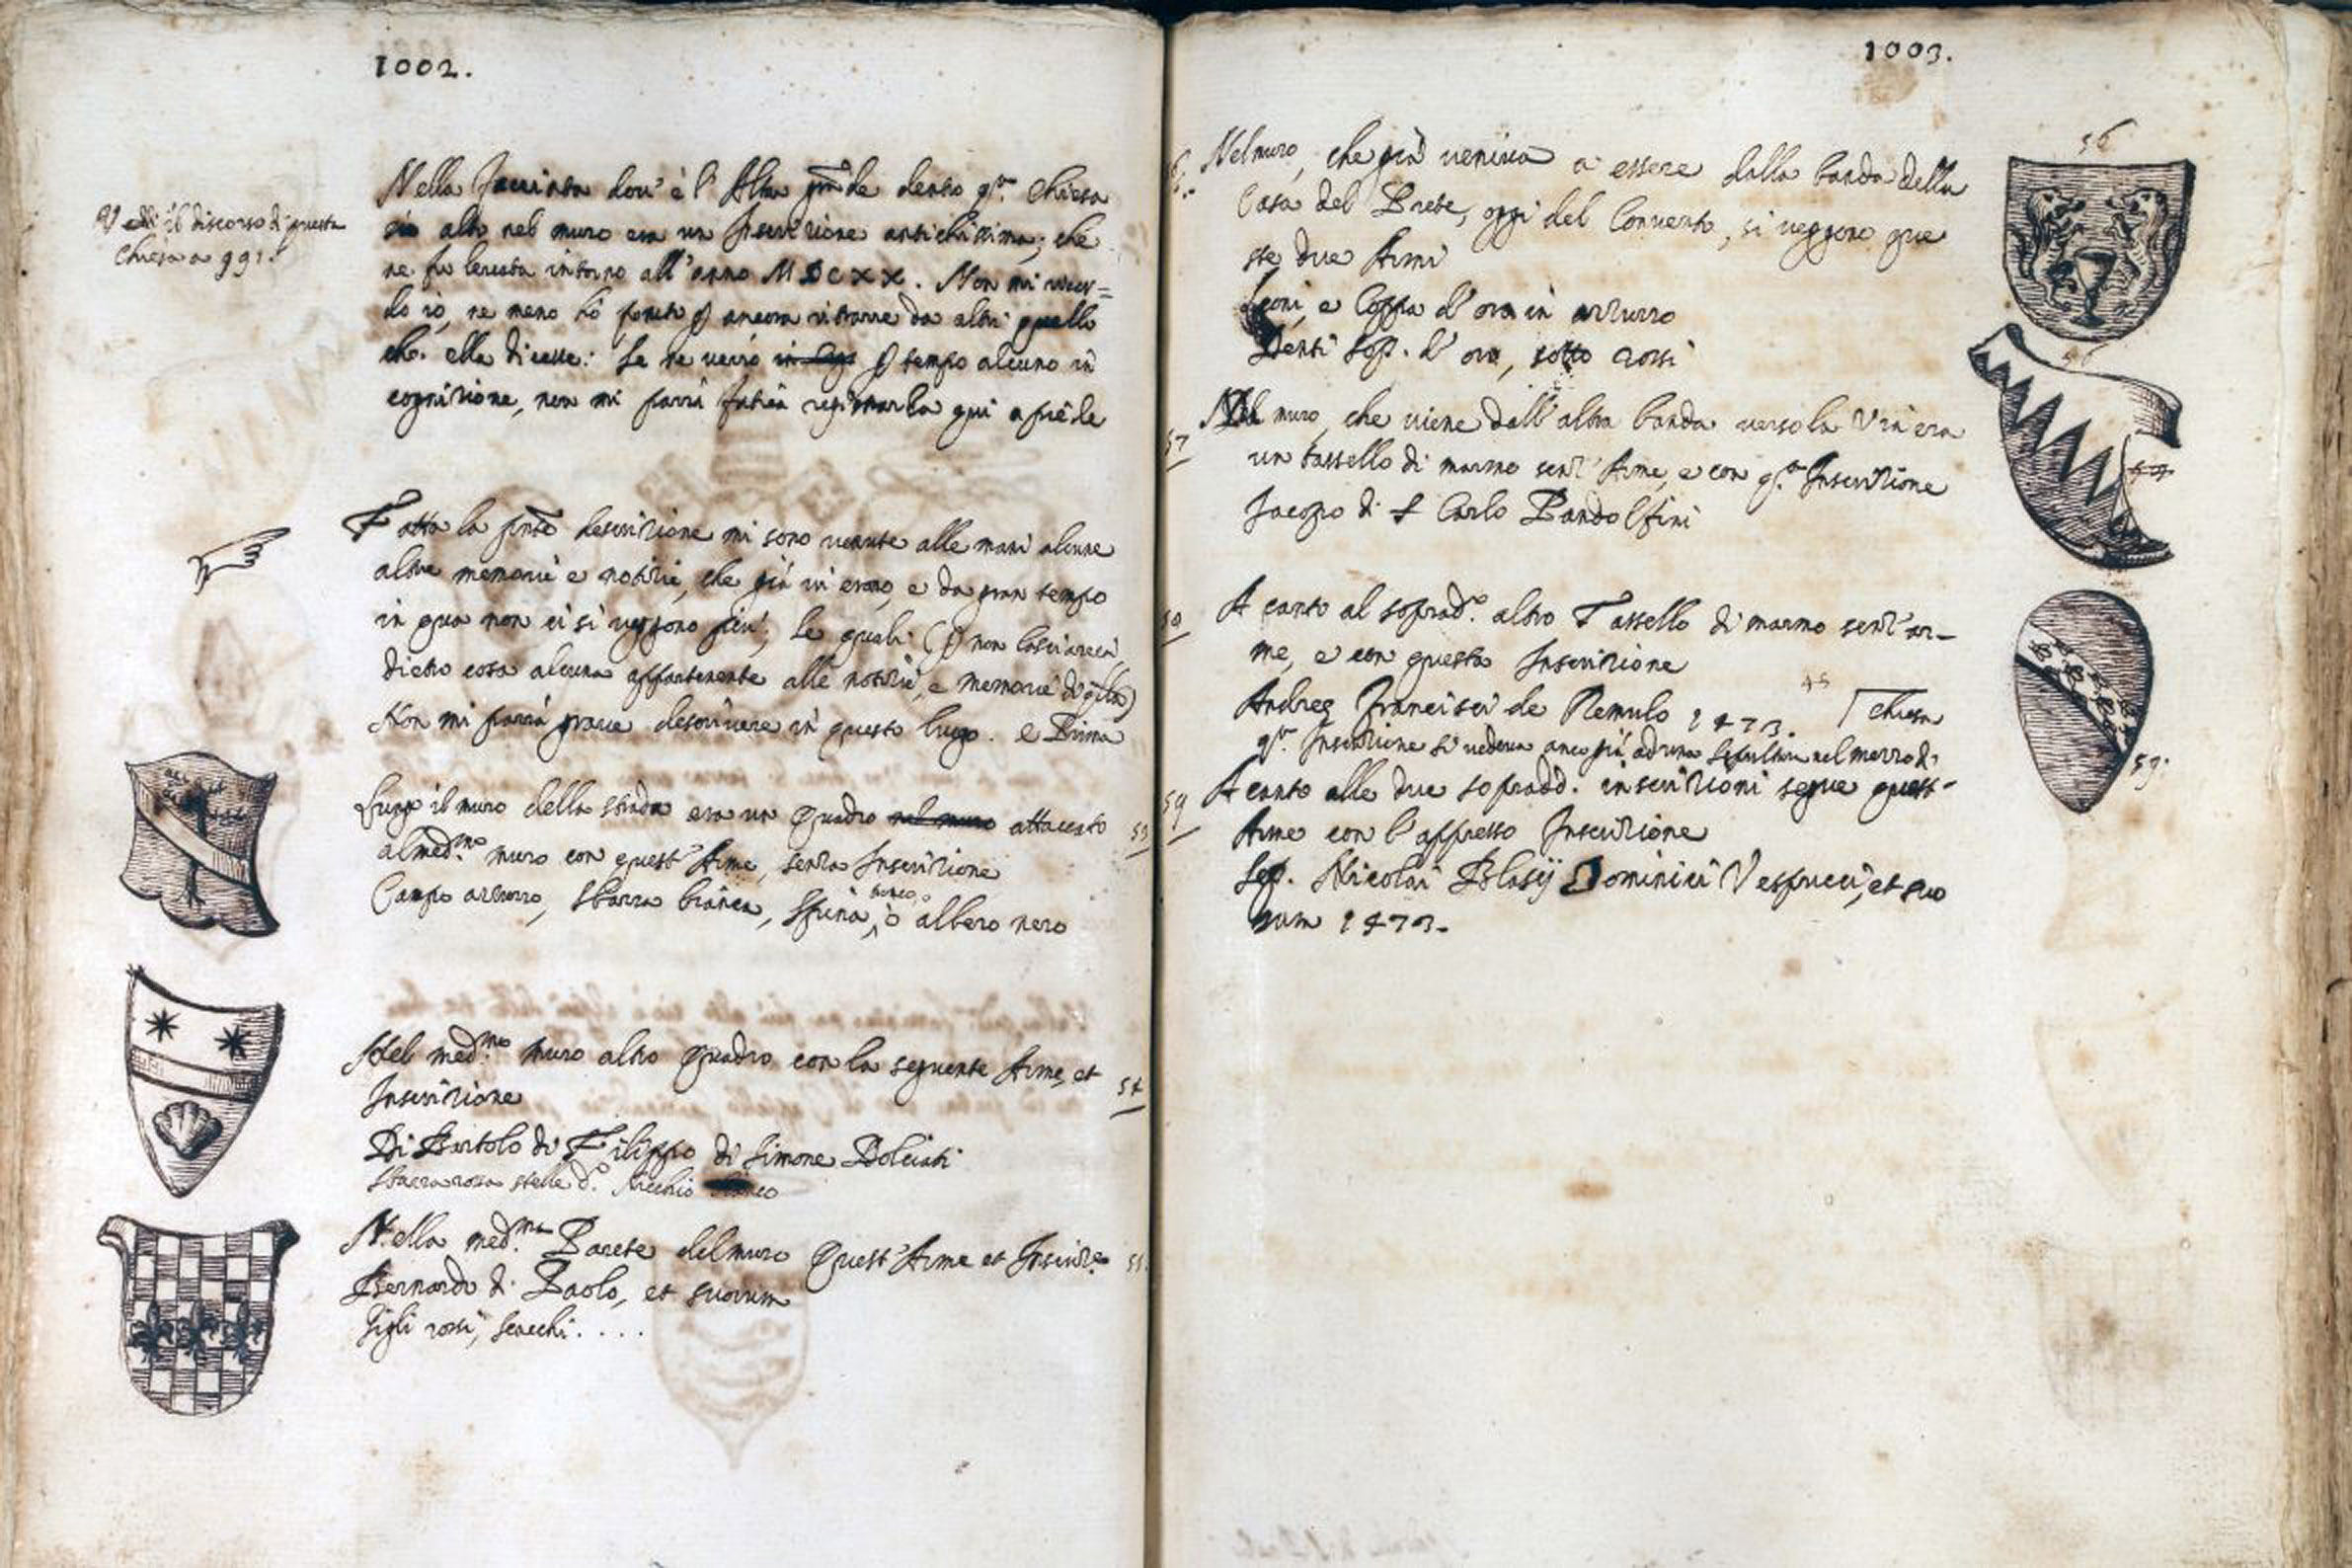 1002.
Vedi il discorso di questa
Chiesa a 991.
Nella facciata dov'è l'Altar grāde dentro q.ta Chiesa
alto nel muro era un Inscrizione antichissima; che
ne fu levata intorno all'anno MDCXX. Non mi ricor=
do io, ne meno hò potuto ancora ritrarre da altri quello
che ella dicesse: Se ne verrò tempo alcuno in
cognizione, non mi parrà fatica registrarla qui a piede
Fatta la pnte descrizione mi sono venute alle mani alcune
altre memorie e notizie, che già vi erano, e da gran tempo
in qua non ci si veggono più; le quali (non lasciare
dietro cosa alcuna appartenente alle notizie, e memorie di q̄lla)
Non mi parrà grave descrivere in questo luogo. e Prima
Lungo il muro della strada era un Quadro nel muro attaccato 53
al med.mo muro con quest'Arme, senza Inscrizione
Campo azzurro, Sbarra bianca, Spina, ò albero nero
Nel med.mo muro altro Quadro con la seguente Arme, et 54
Inscrizione
Di Bartolo di Filippo di Simone Dolciati
Sbarra rossa stelle d.o Nicchio
Nella med.ma Parete del muro Quest'Arme et Inscriz.e 55
Bernardo di Paolo, et suorum
Gigli rossi, scacchi. . . .
1003.
56
Nel muro, che già veniva a essere dalla banda della
Casa del Prete, oggi del Convento, si veggono que
ste due Armi
Leoni, e Coppa d'oro in azzurro
Denti sop. d'oro, sotto rossi
57 Nel muro, che viene dall'altra banda verso la Via era
un tassello di marmo senz'Arme, e con q.ta Inscrizione
Jacopo di Carlo Pandolfini
58 A canto al soprad.o altro Tassello di marmo senz'ar-
me, e con questa Inscrizione
Andreę Francisci de Remulo 1473.
q.ta Inscrizione si vedeva anco già ad una Sepultura nel mezzo di
Chiesa
59 A canto alle due sopradd. inscrizioni segue quest'
Arme con l'appresso Inscrizione
Sep. Nicolai Blasij Dominici Vespucci, et suo
rum 1473.
59.